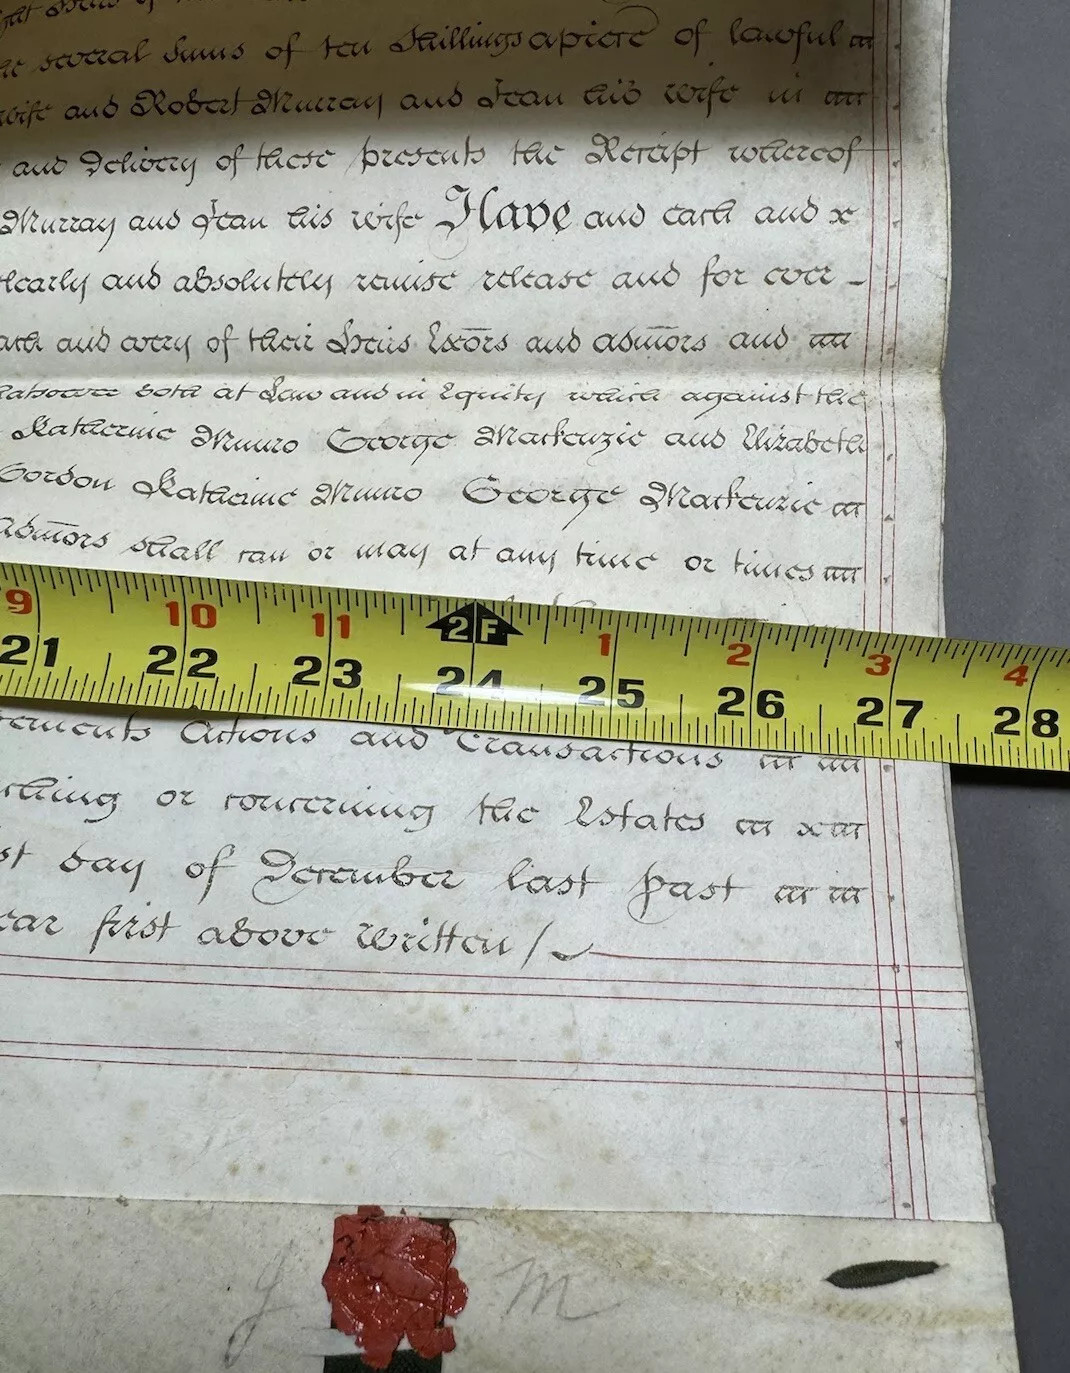 several Sums of ten Shillings apiece of lawful
wife and Robert Murray and Jean his wife in
and Delivery of these presents the Receipt whereof
Murray and Jean his wife Have and each and
clearly and absolutely remise release and for ever
each and every of their Heirs Exōrs and admōrs and
whatsoever both at Law and in Equity which against the
Katherine Munro George Mackenzie and Elizabeth
Gordon Katherine Munro George Mackenzie
admōrs shall can or may at any time or times
9 10 11 2F 1 2 3 4
21 22 23 24 25 26 27 28
Actions and Transactions
or concerning the Estates
day of December last past
first above written
J M